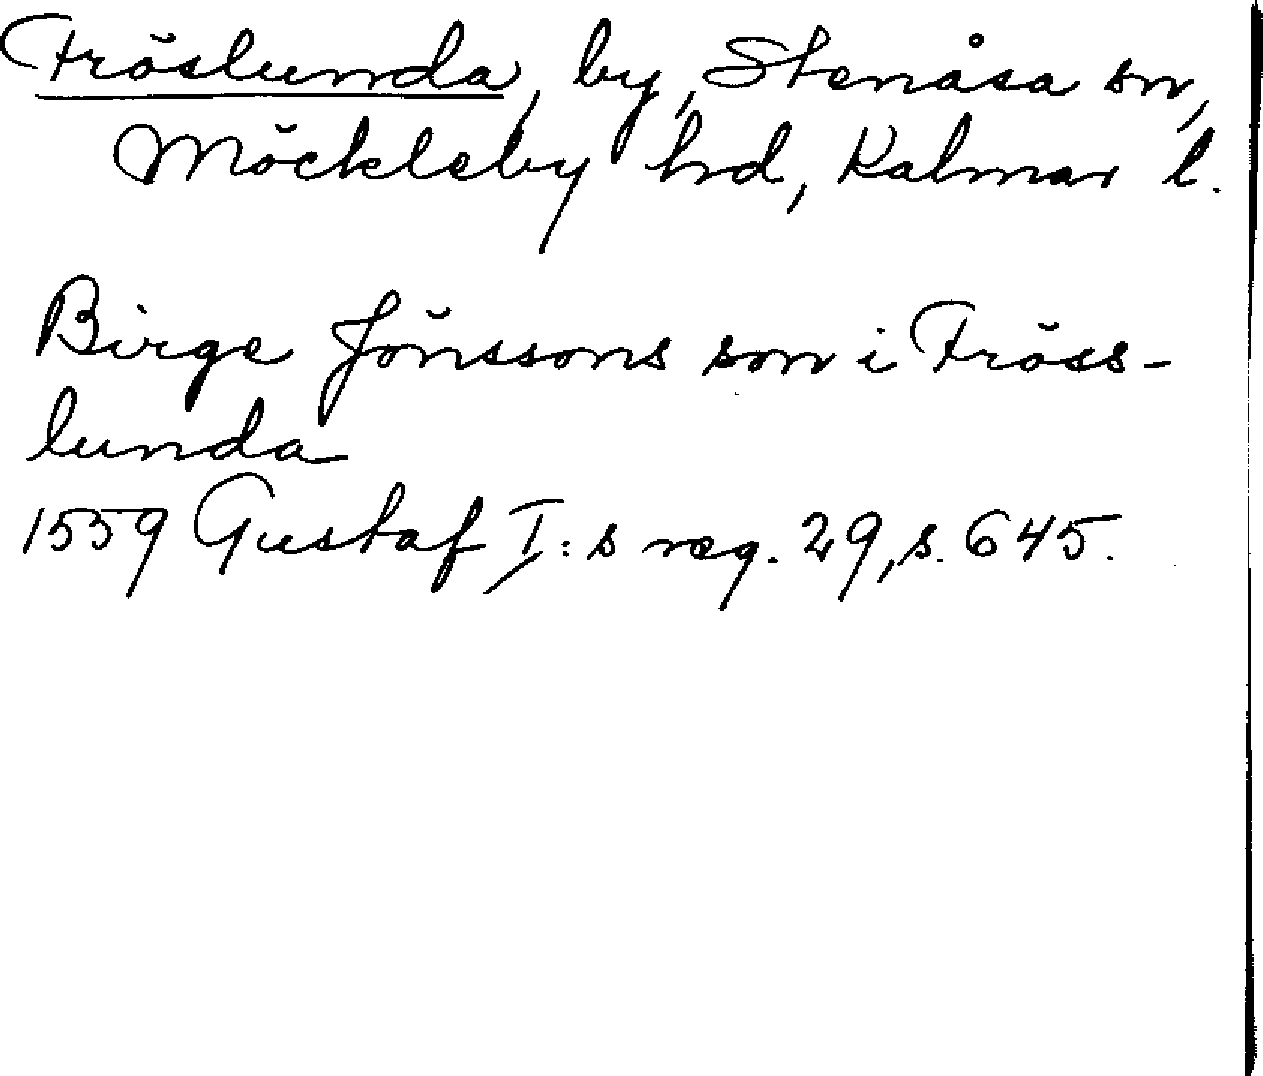 Fröslunda, by, Stenåsa sn,
Möckleby hd, Kalmar l.
Birge Jönssons son i Fröss-
lunda
1559 Gustaf I:s reg. 29, s. 645.